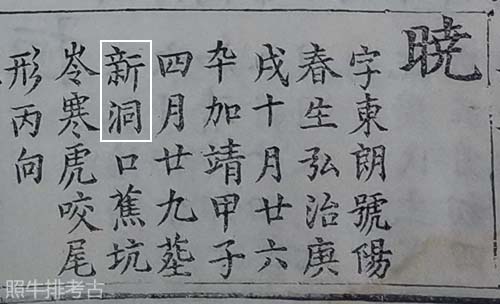 暁
字東朗號陽
春生弘治庚
戌十月廿六
卒加靖甲子
四月廿九塟
新洞口蕉坑
岺寒虎咬尾
形丙向
照牛排考古